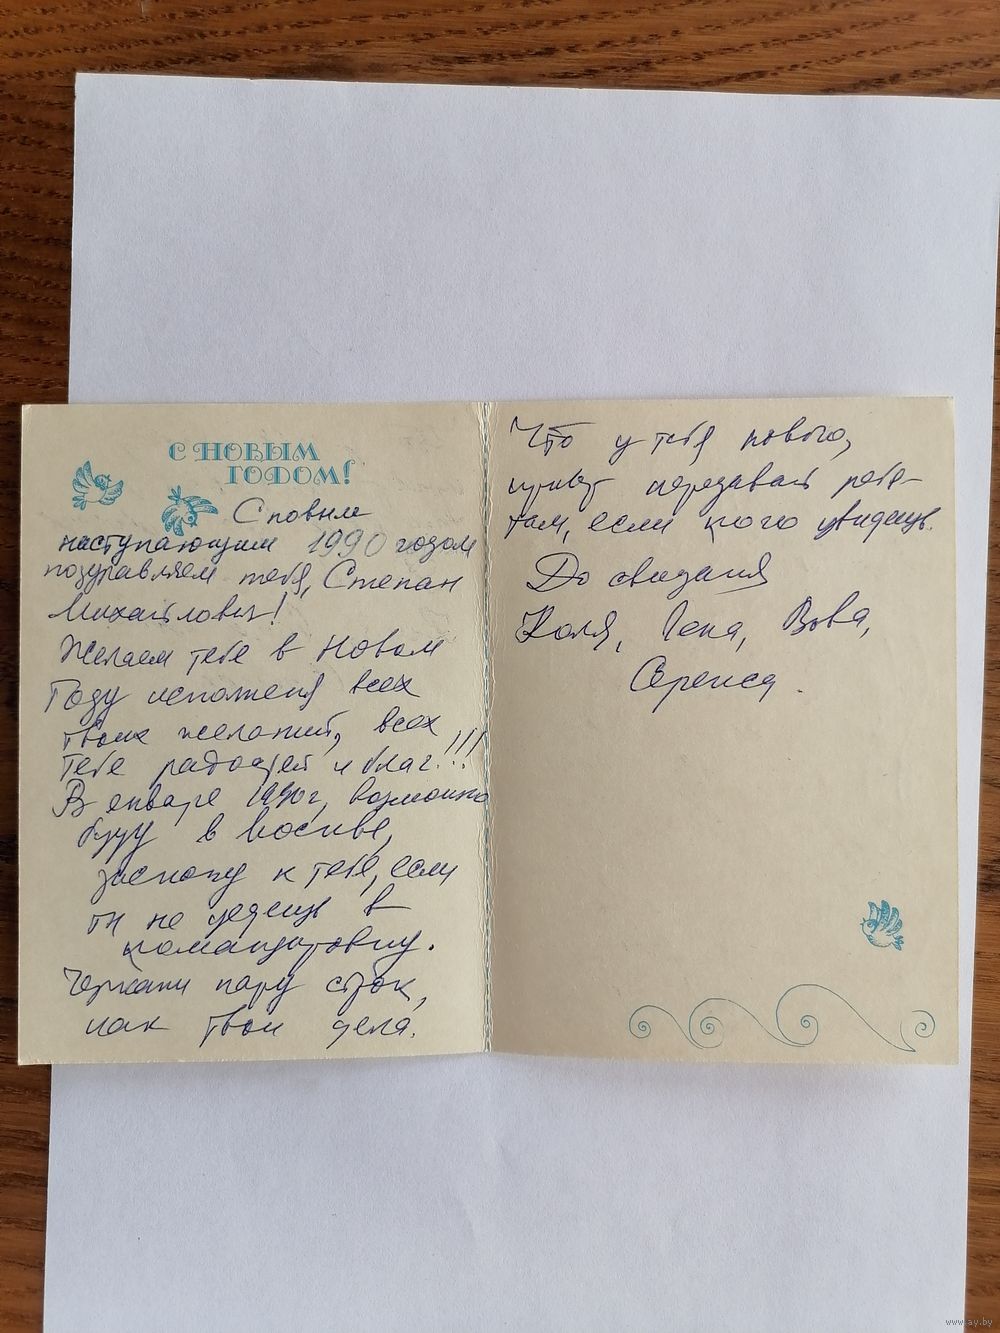 С НОВЫМ
ГОДОМ!
С новым
наступающим 1990 годом
поздравляем тебя, Степан
Михайлович!
Желаем тебе в Новом
Году исполненя всех
твоих желаний, всех
тебе радостей и благ!!!
В январе 1990 г, возможно
буду в Москве,
заскочу к тебе, если
ты не уедешь в
командировку.
Черкани пару строк,
как твои дела.
Что у тебя нового,
привет передавай ребя-
там, если кого увидешь.
До свидания
Коля, Лена, Вова,
Сережа.
www.ay.by